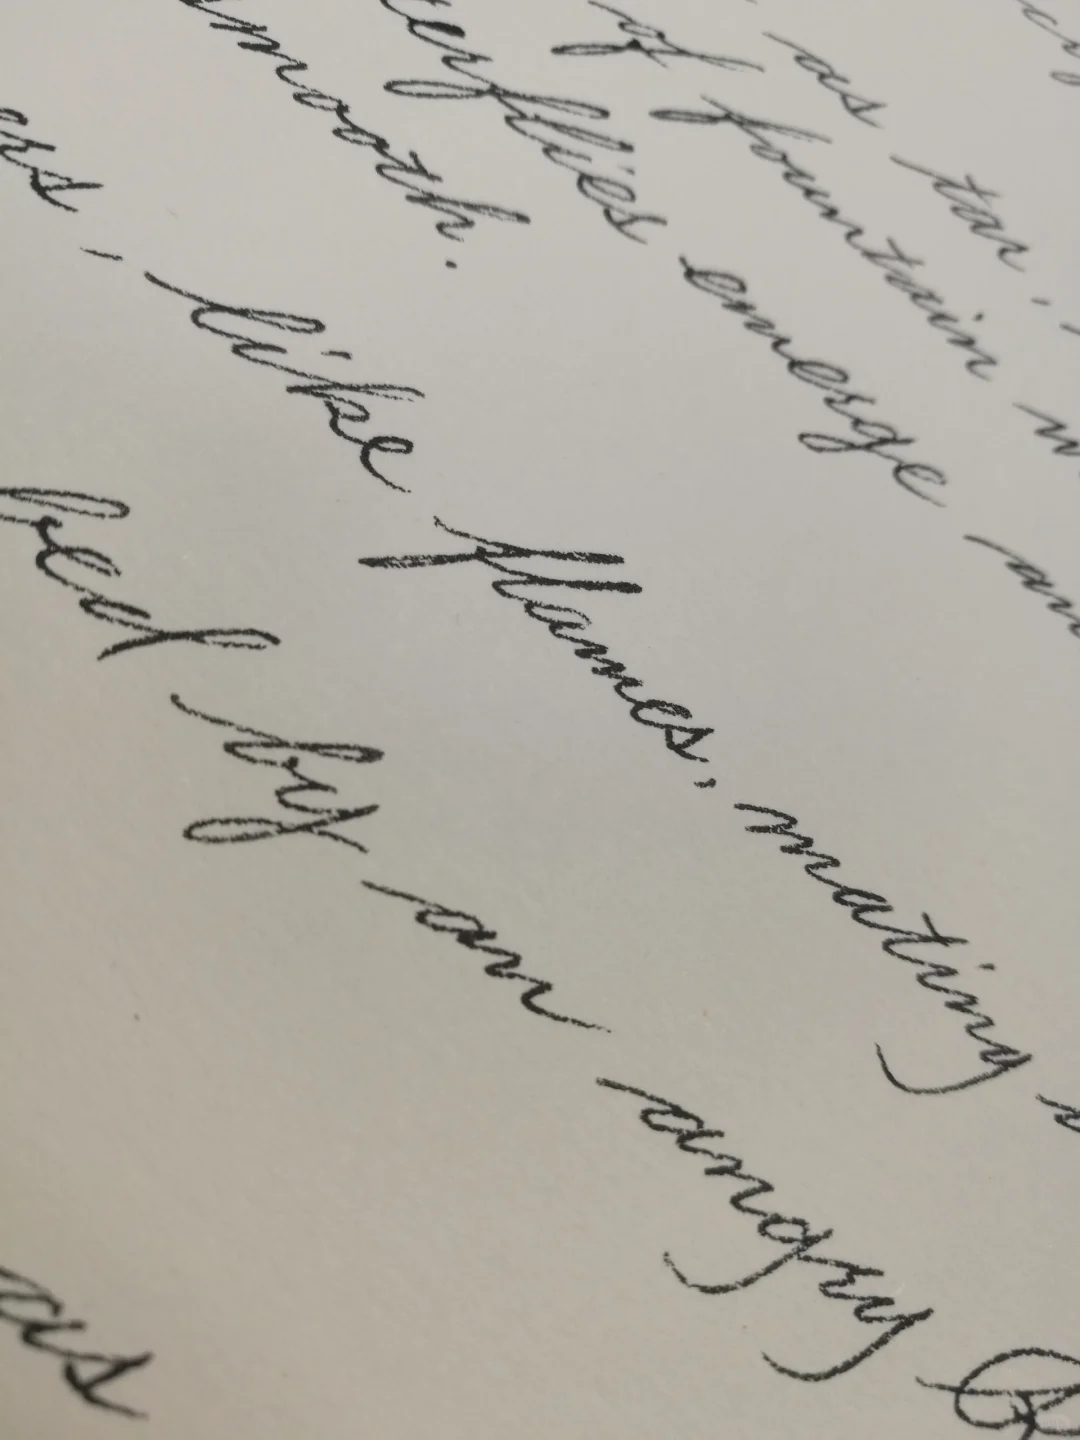 as tar,
of fountain
terflies emerge
smooth.
ers, like flames, mating
bed by an angry
as